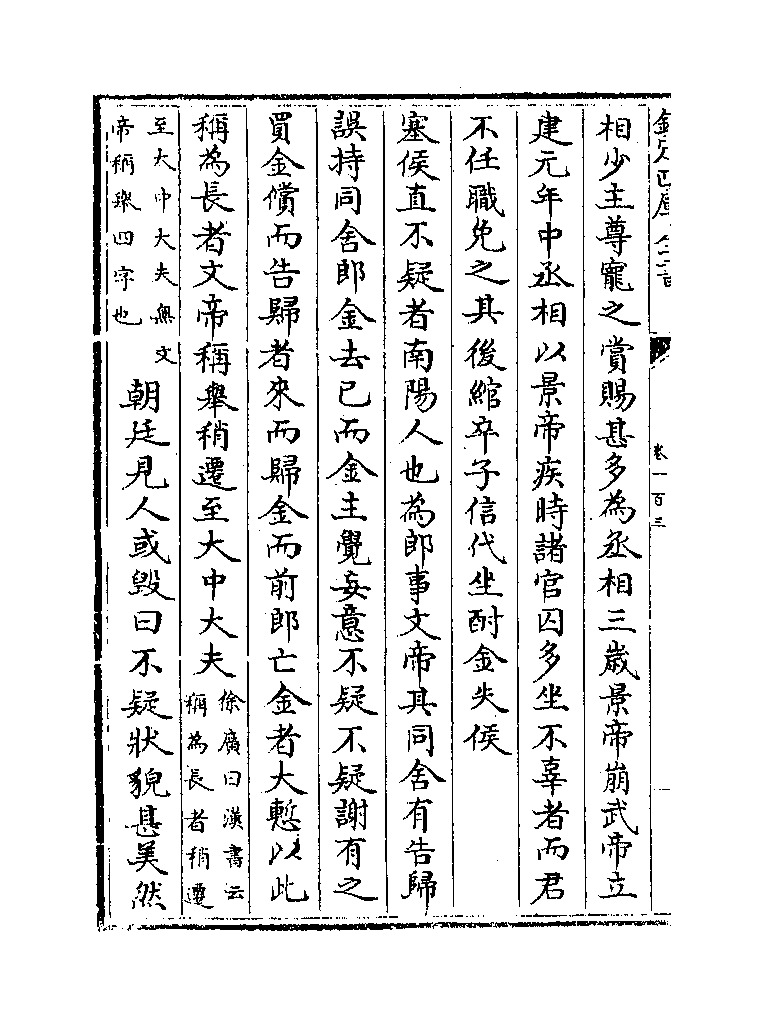 相少主尊寵之賞賜甚多為丞相三歲景帝崩武帝立
建元年中丞相以景帝疾時諸官囚多坐不辜者而君
不任職免之其後綰卒子信代坐酎金失侯
塞侯直不疑者南陽人也為郎事文帝其同舍有告歸
誤持同舍郎金去已而金主覺妄意不疑不疑謝有之
買金償而告歸者來而歸金而前郎亡金者大慙以此
稱為長者文帝稱舉稍遷至大中大夫
徐廣曰漢書云
稱為長者稍遷
至大中大夫無文
帝稱舉四字也
朝廷見人或毀曰不疑狀貌甚美然
卷一百三